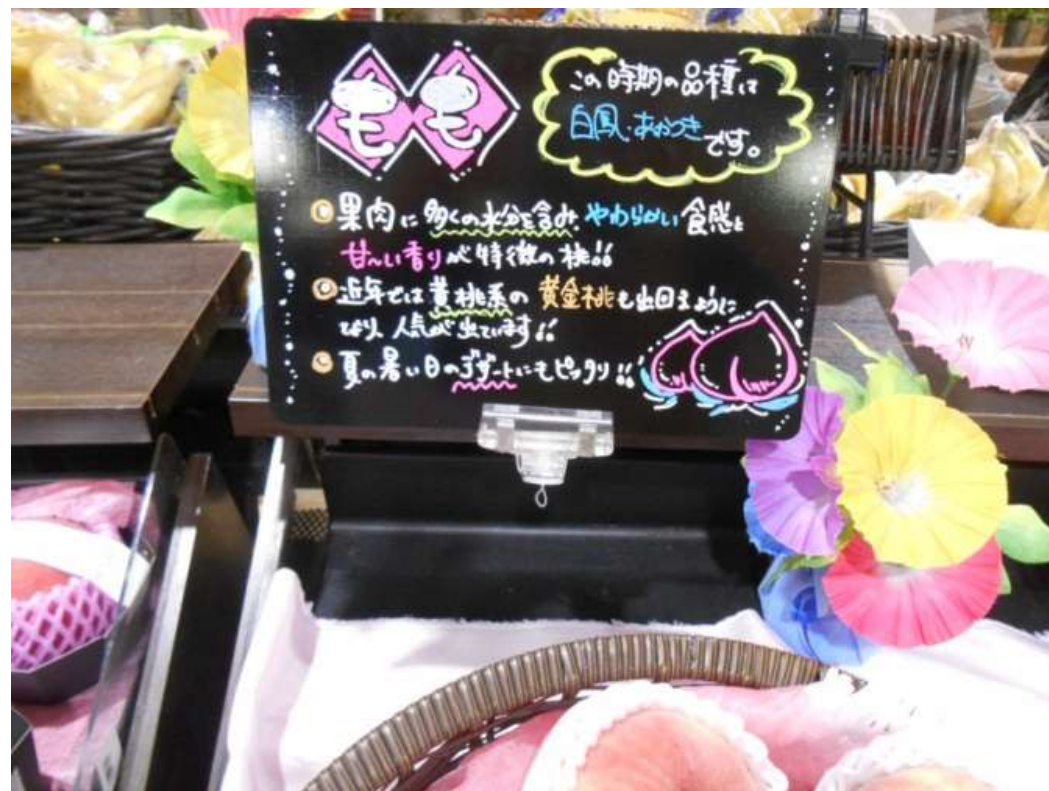 モモ
この時期の品種は
白鳳・あかつき
です。
果肉に多くの水分を含み、やわらかい食感と
甘〜い香りが特徴の桃!!
近年では黄桃系の黄金桃も出回るように
なり、人気が出ています!!
夏の暑い日のデザートにもピッタリ!!